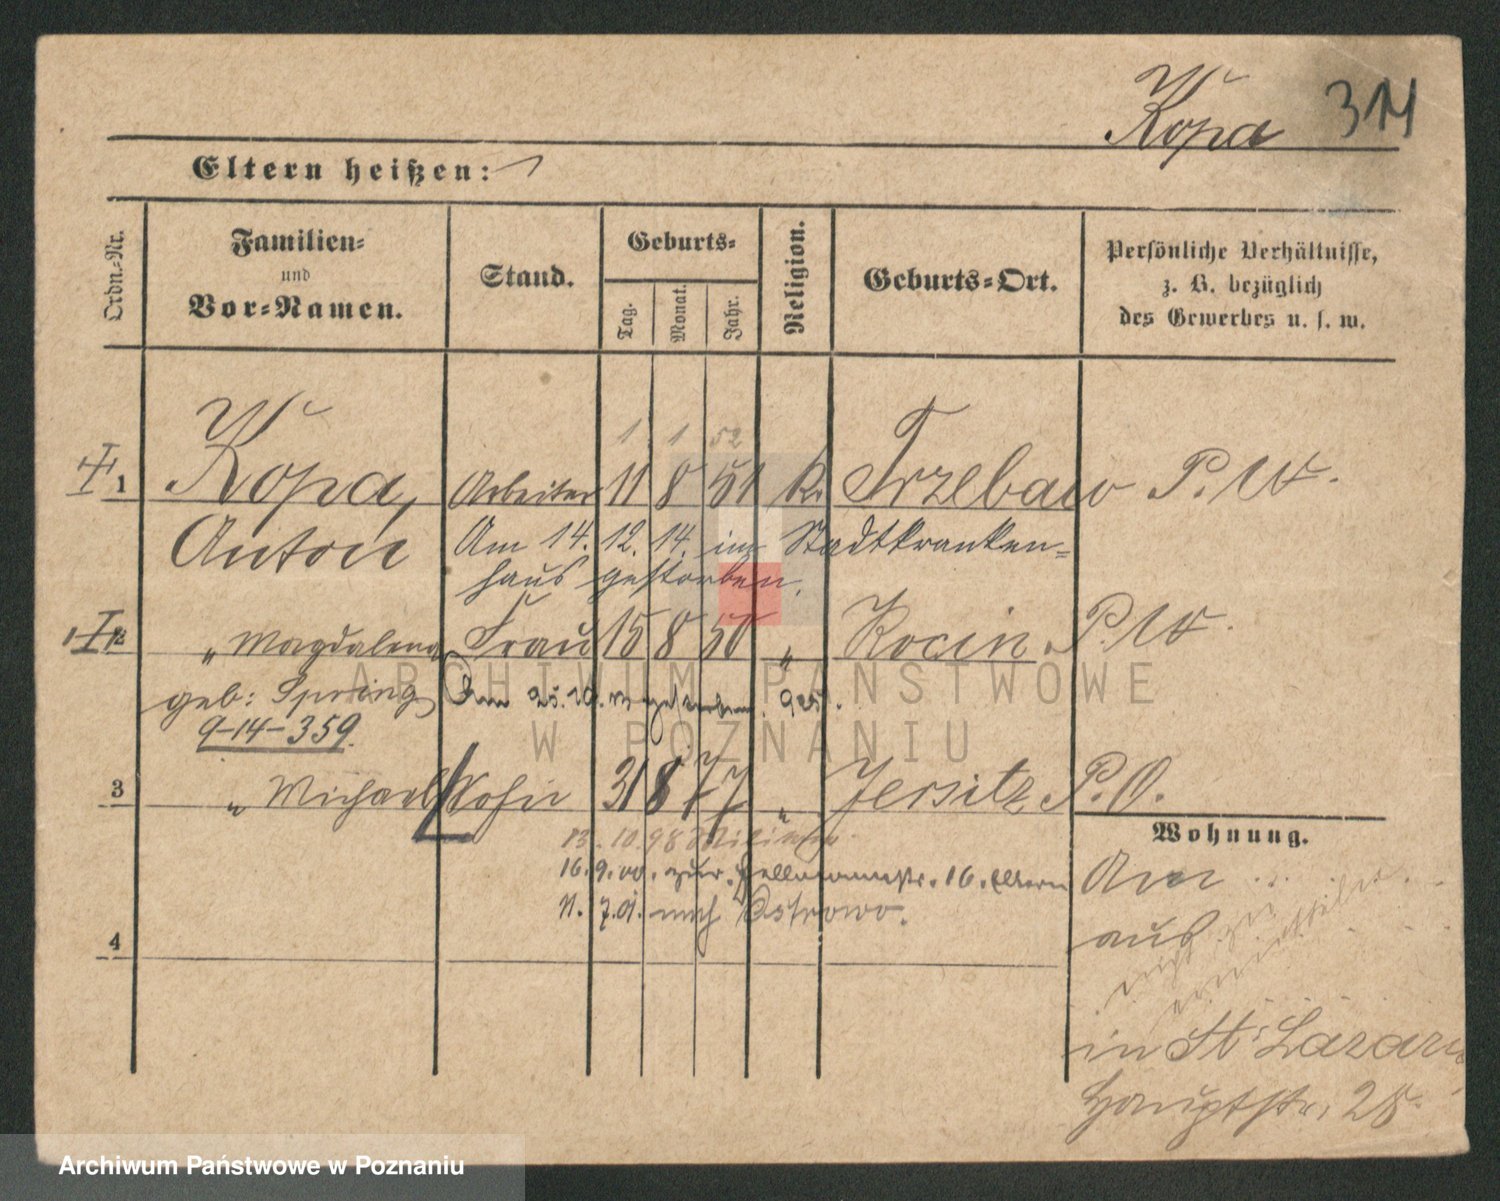 Kopa 311
Eltern heißen:
Ordn.-Nr.
Familien-
und
Vor-Namen.
Stand.
Geburts-
Tag.
Monat.
Jahr.
Religion.
Geburts-Ort.
Persönliche Verhältnisse,
z. B. bezüglich
des Gewerbes u. s. w.
1 1 52
1 Kopa, Arbeiter 11 8 51 k. Trzebaw P. W.
Anton Am 14. 12. 14. im Stadtkranken-
haus gestorben.
2 " Magdalena Frau 15 8 50 " Kocin P. W.
geb: Spring Am 25. 10. gestorben.
9-14-359.
3 " Michael Sohn 31 8 77 " Jersitz P. O.
13. 10. 98
16. 9. 00. zur 16. Eltern
11. 7. 01. nach Ostrowo.
4
Wohnung.
Am
aus
nicht zu
ermitteln
in St. Lazarus
Hauptstr. 28.
ARCHIWUM PAŃSTWOWE
W POZNANIU
Archiwum Państwowe w Poznaniu